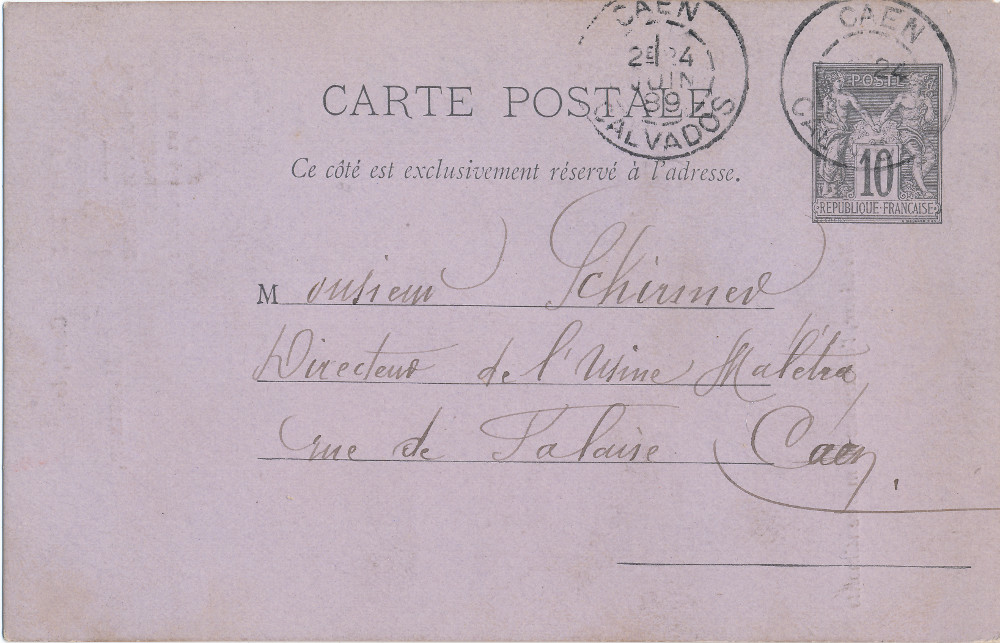 CAEN
2E 24
JUIN
89
CALVADOS
CAEN
24
CAL
POSTE
10
REPUBLIQUE FRANCAISE
CARTE POSTALE
Ce côté est exclusivement réservé à l'adresse.
Monsieur Schirmer
Directeur de l'Usine Malétra
rue de Falaise Caen.